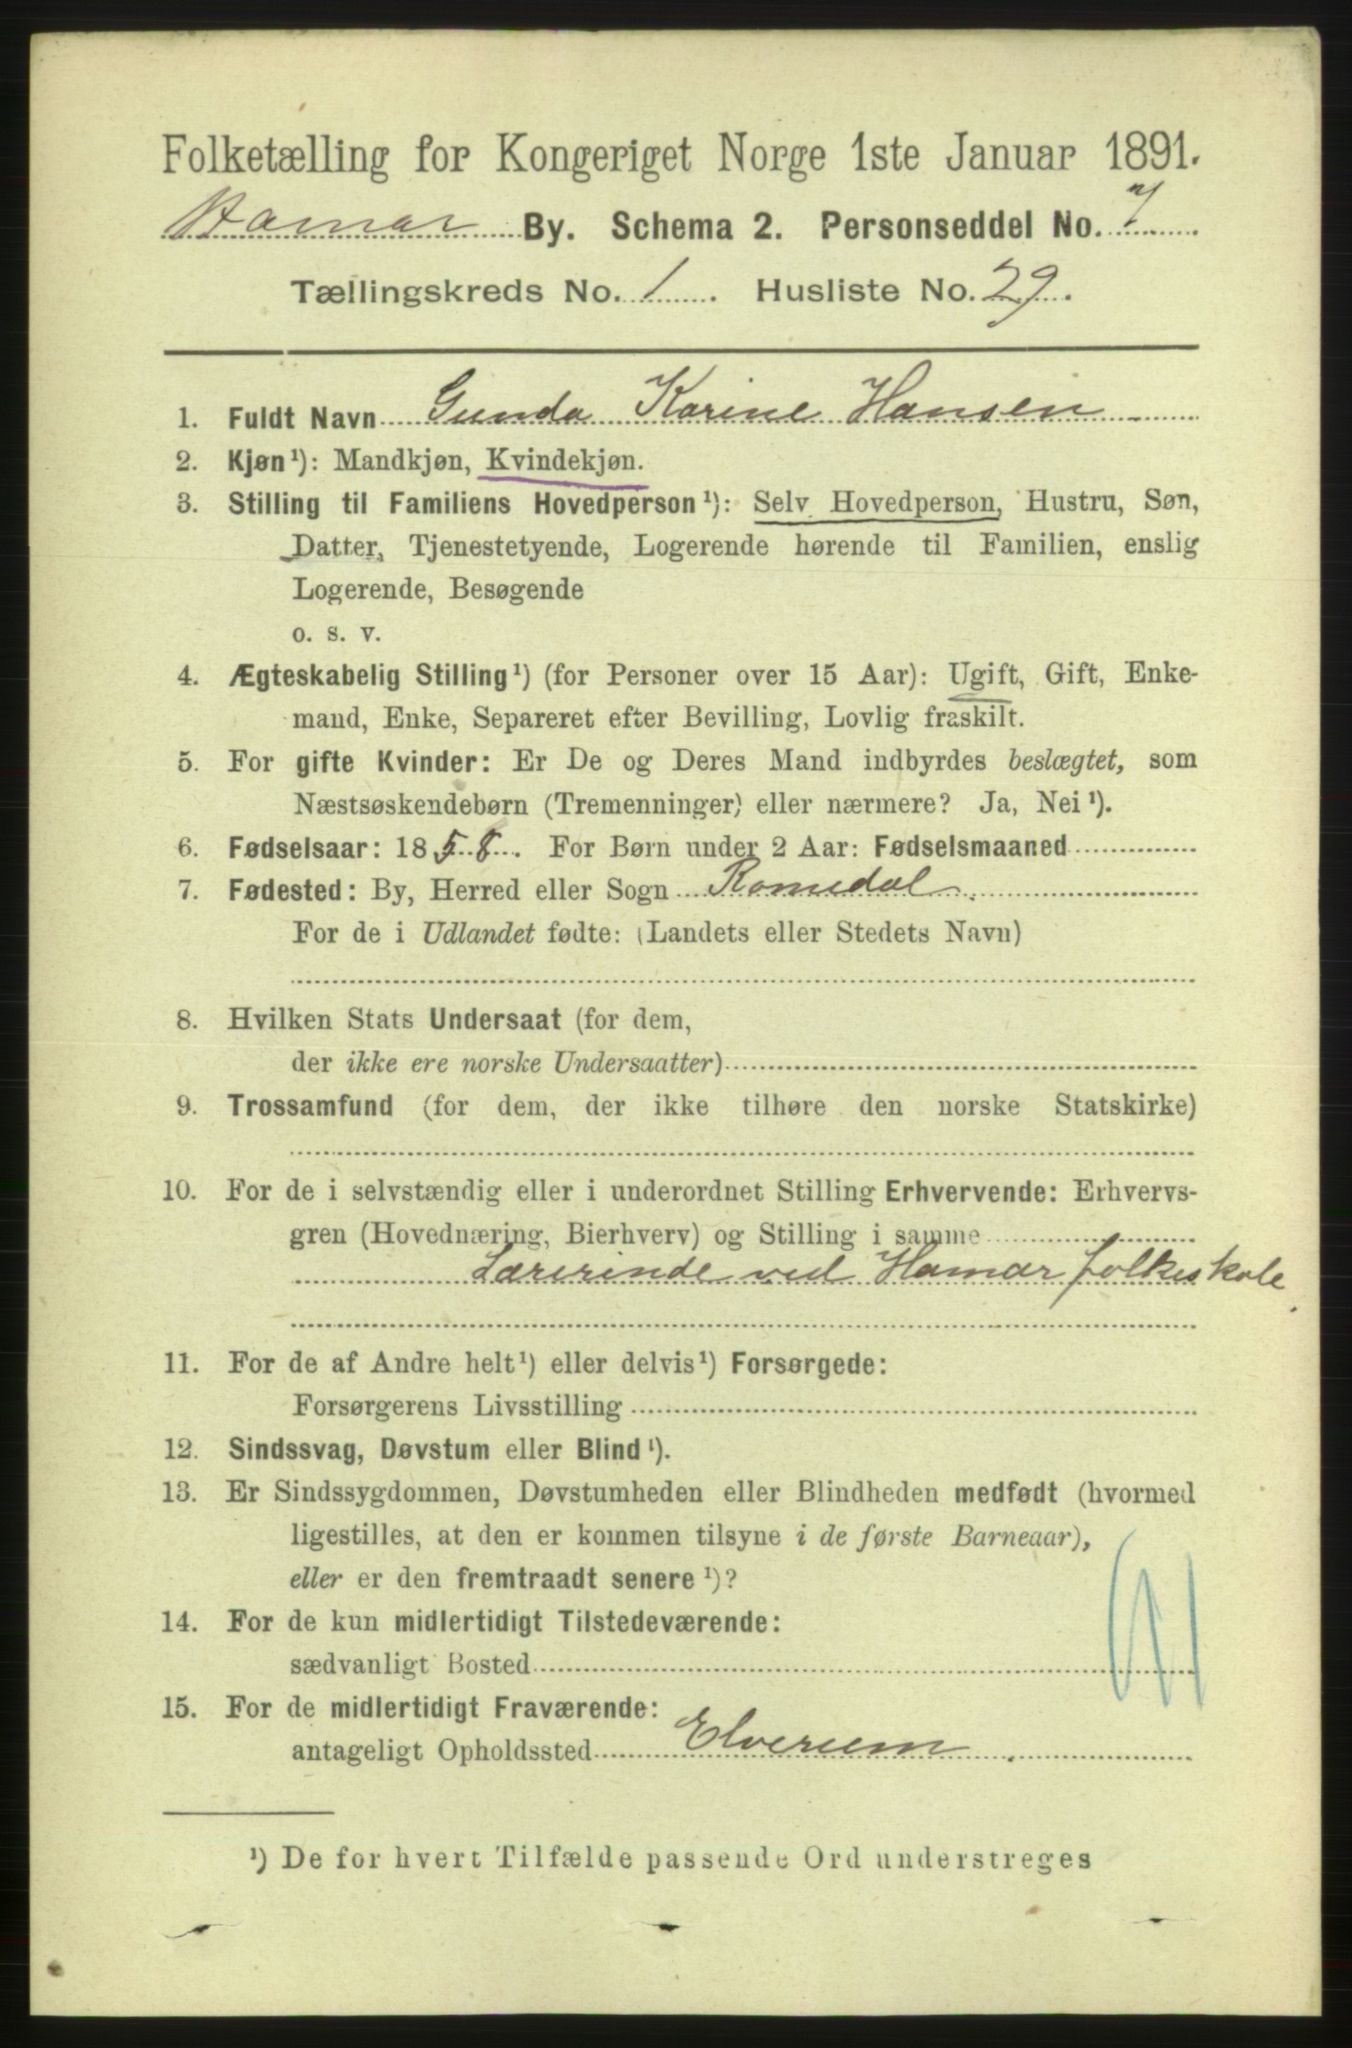 Folketælling for Kongeriget Norge 1ste Januar 1891.
Hamar By. Schema 2. Personseddel No. 7
Tællingskreds No. 1. Husliste No. 29.
1. Fuldt Navn Gunda Karine Hansen
2. Kjøn¹): Mandkjøn, Kvindekjøn.
3. Stilling til Familiens Hovedperson¹): Selv Hovedperson, Hustru, Søn,
Datter, Tjenestetyende, Logerende hørende til Familien, enslig
Logerende, Besøgende
o. s. v.
4. Ægteskabelig Stilling¹) (for Personer over 15 Aar): Ugift, Gift, Enke-
mand, Enke, Separeret efter Bevilling, Lovlig fraskilt.
5. For gifte Kvinder: Er De og Deres Mand indbyrdes beslægtet, som
Næstsøskendebørn (Tremenninger) eller nærmere? Ja, Nei¹).
6. Fødselsaar: 1858. For Børn under 2 Aar: Fødselsmaaned
7. Fødested: By, Herred eller Sogn Romedal.
For de i Udlandet fødte: (Landets eller Stedets Navn)
8. Hvilken Stats Undersaat (for dem,
der ikke ere norske Undersaatter)
9. Trossamfund (for dem, der ikke tilhøre den norske Statskirke)
10. For de i selvstændig eller i underordnet Stilling Erhvervende: Erhvervs-
gren (Hovednæring, Bierhverv) og Stilling i samme
Lærerinde ved Hamar folkeskole.
11. For de af Andre helt¹) eller delvis¹) Forsørgede:
Forsørgerens Livsstilling
12. Sindssvag, Døvstum eller Blind¹).
13. Er Sindssygdommen, Døvstumheden eller Blindheden medfødt (hvormed
ligestilles, at den er kommen tilsyne i de første Barneaar),
eller er den fremtraadt senere¹)?
14. For de kun midlertidigt Tilstedeværende:
sædvanligt Bosted
15. For de midlertidigt Fraværende:
antageligt Opholdssted Elverum.
¹) De for hvert Tilfælde passende Ord understreges